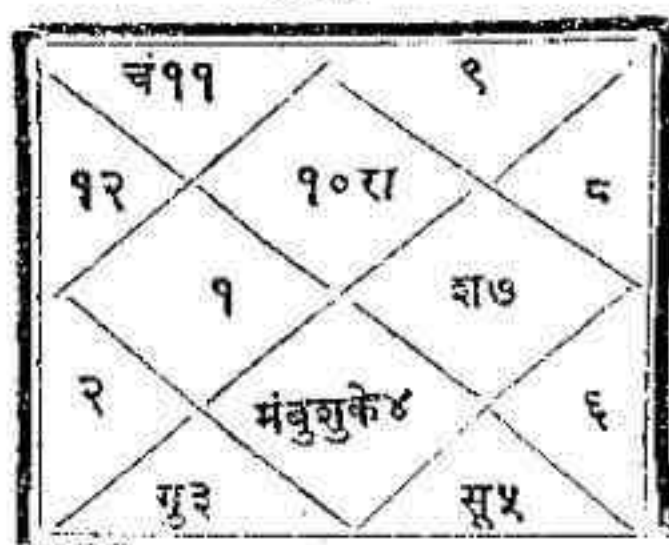 चं११ ९
१२ १०रा ८
१ श७
२ मंबुशुके४ ६
गु३ सू५